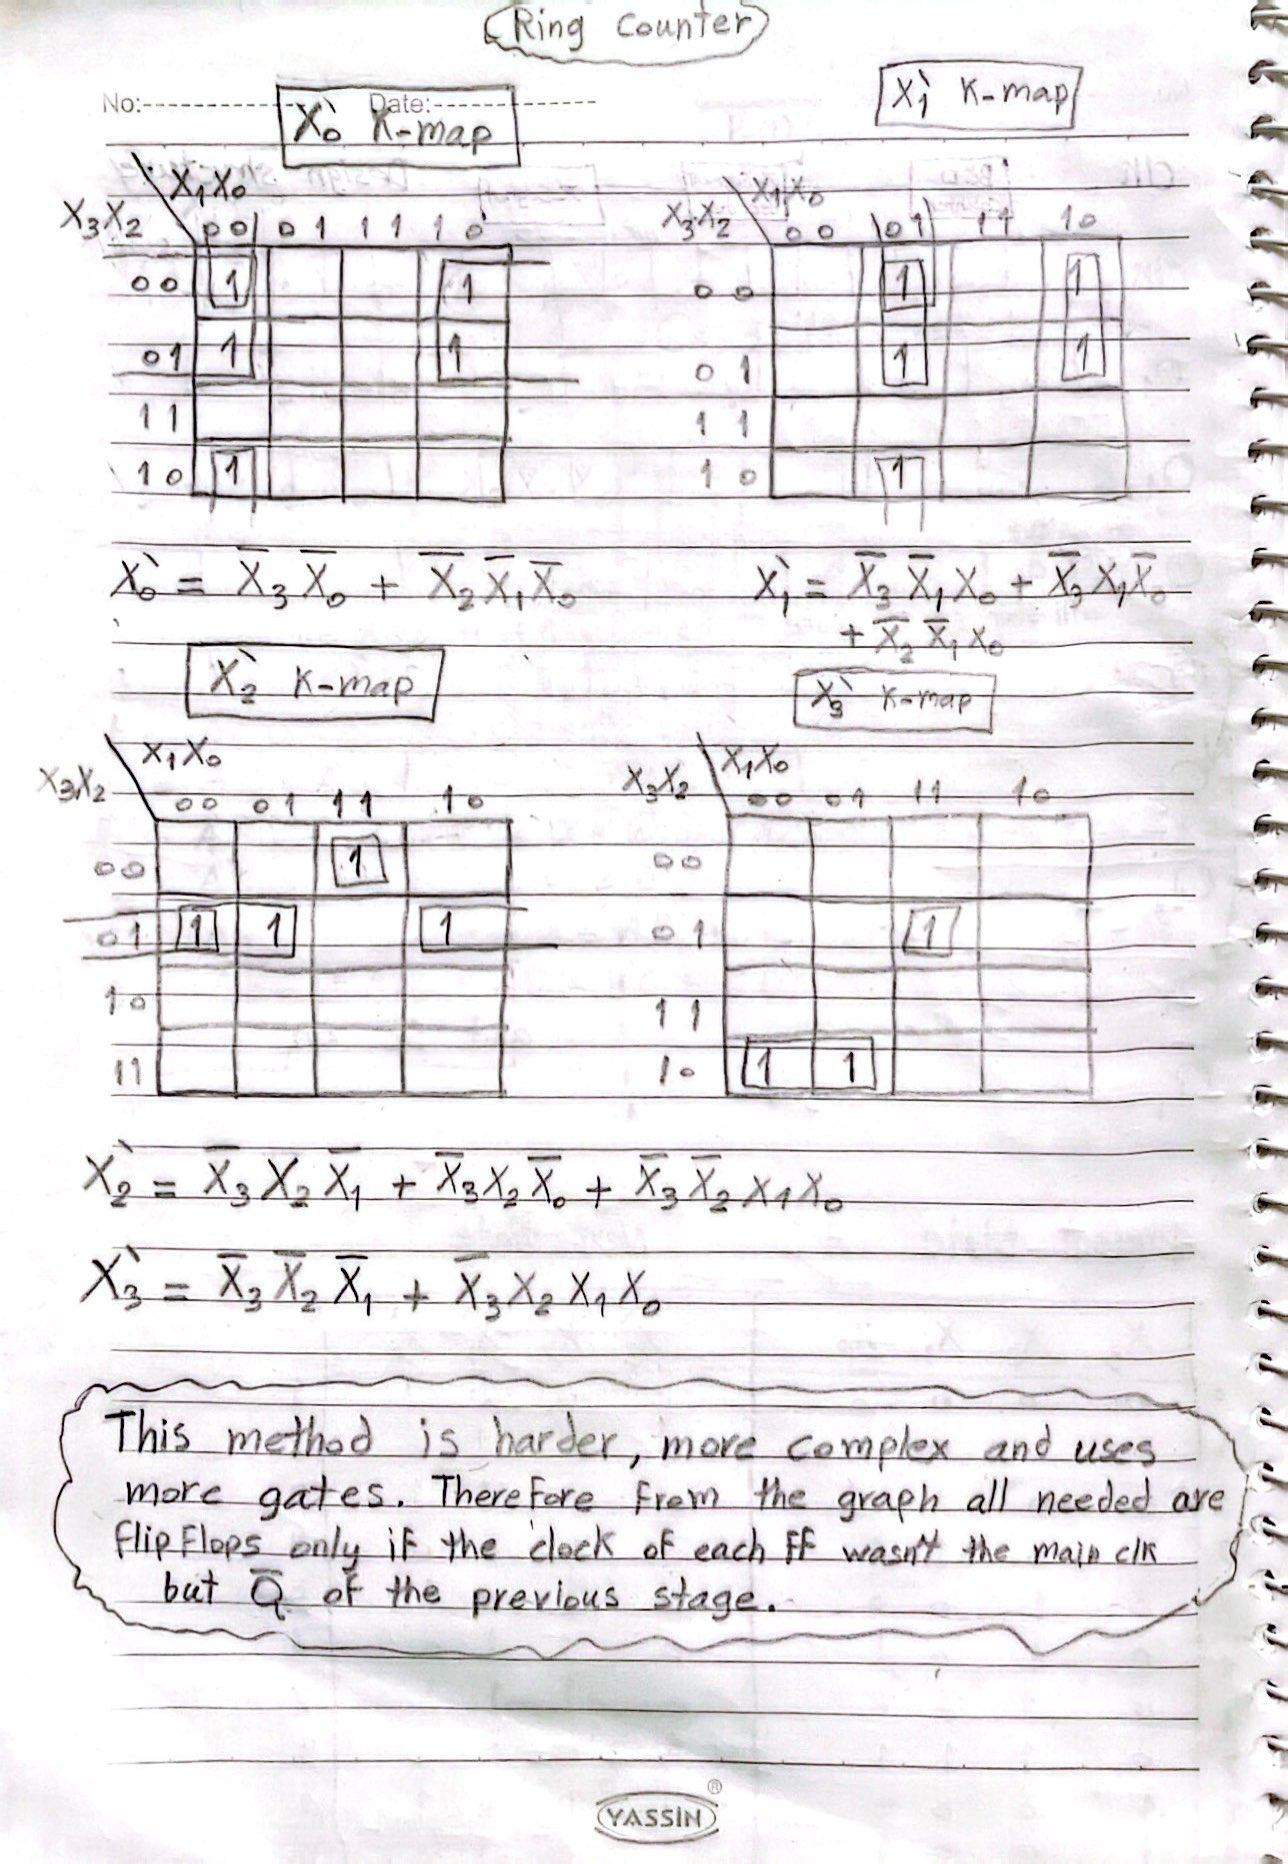 Ring Counter
No:--------------- Date:---------------
X₀` K-map
X₁` K-map
X₁X₀
X₃X₂
00 01 11 10
00 1 1
01 1 1
11
10 1
X₁X₀
X₃X₂
00 01 11 10
00 1 1
01 1 1
11
10 1
X₀` = X̅₃ X̅₀ + X̅₂ X̅₁ X̅₀
X₁` = X̅₃ X̅₁ X₀ + X̅₃ X₁ X̅₀
+ X̅₂ X̅₁ X₀
X₂` K-map
X₃` K-map
X₁X₀
X₃X₂
00 01 11 10
00 1
01 1 1 1
10
11
X₁X₀
X₃X₂
00 01 11 10
00
01 1
11
10 1 1
X₂` = X̅₃ X₂ X̅₁ + X̅₃ X₂ X̅₀ + X̅₃ X̅₂ X₁ X₀
X₃` = X̅₃ X̅₂ X̅₁ + X̅₃ X₂ X₁ X₀
This method is harder, more complex and uses
more gates. Therefore from the graph all needed are
flipflops only if the clock of each ff wasn't the main clk
but Q̅ of the previous stage.
YASSIN®